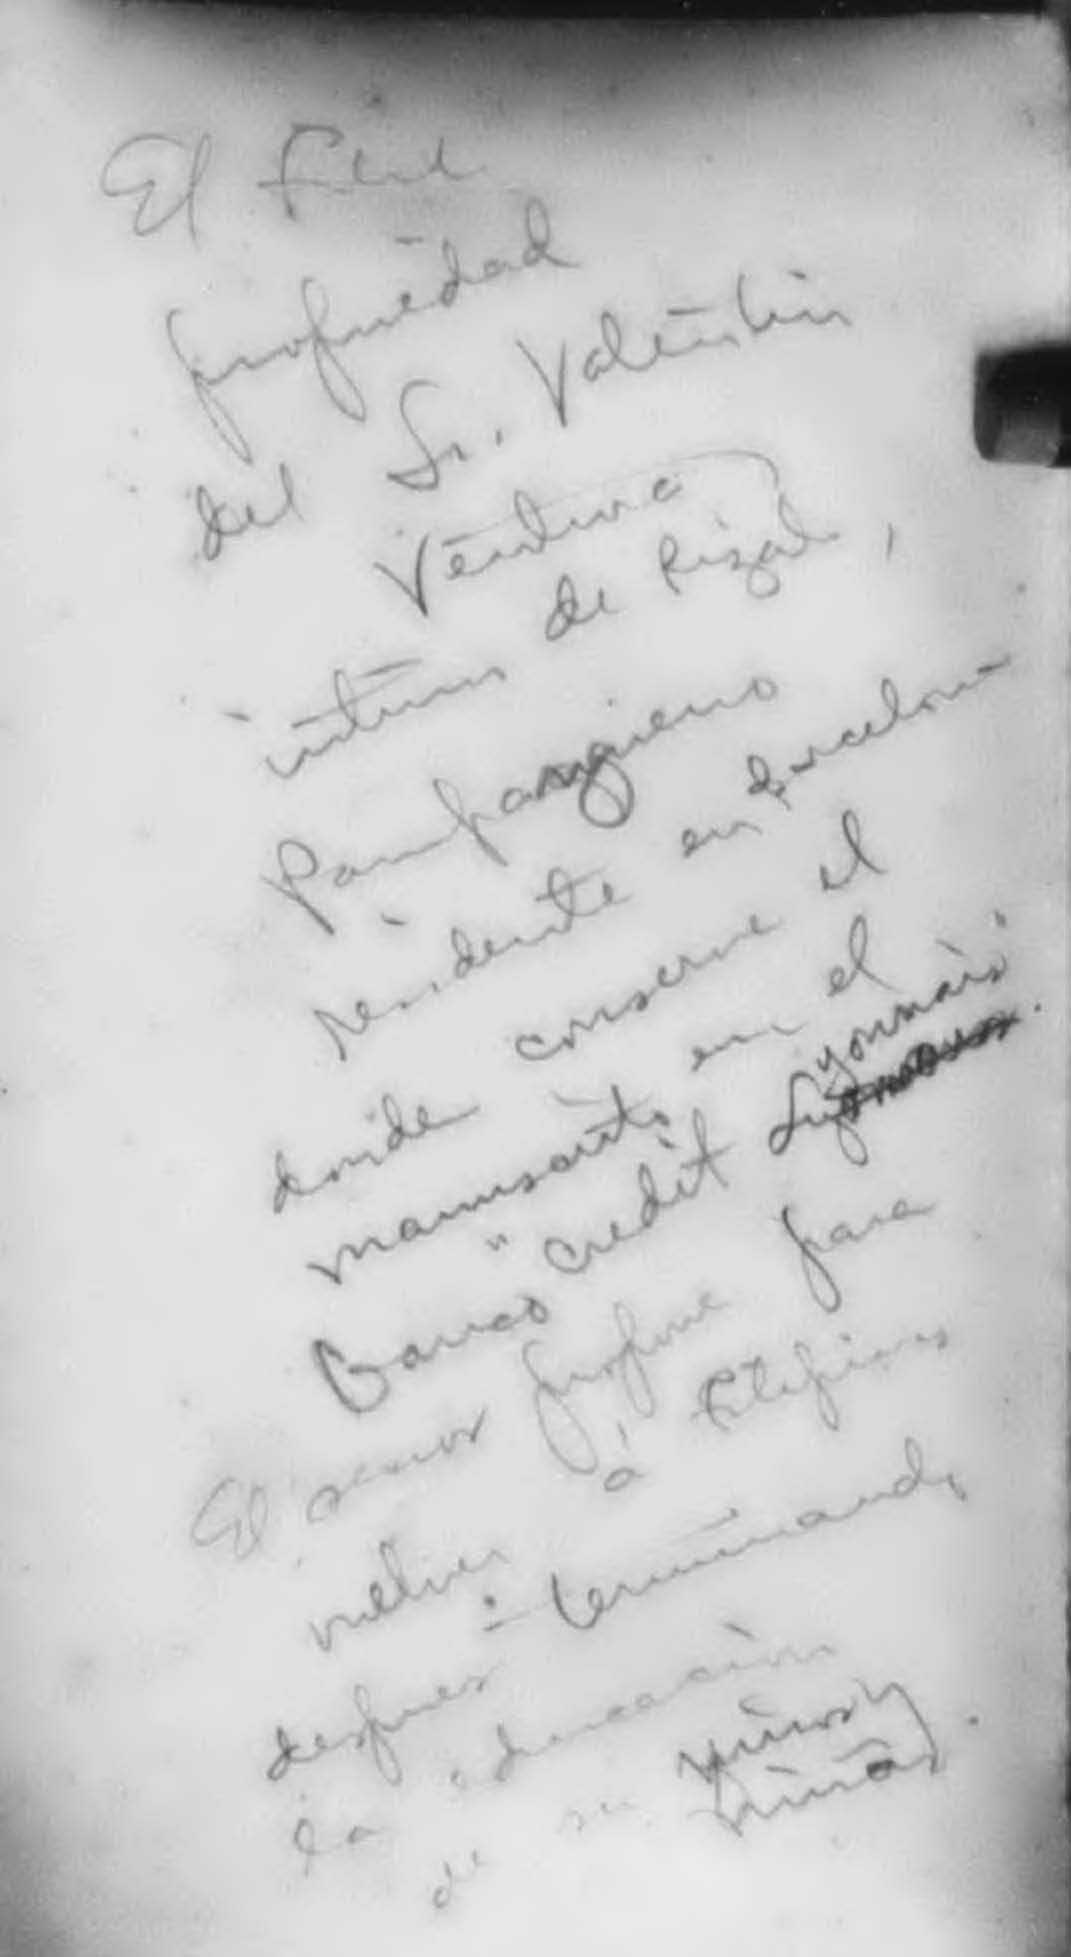 El Fili
propiedad
del Sr. Valentin
Ventura
intimo de Rizal,
Pampangueno
residente en Barcelona
donde conserva el
manuscrito en el
Banco "Credit Lyonnais"
El senor propone para
volver á Filipinas
despues terminando
la educacion
de su niños y
niñas.